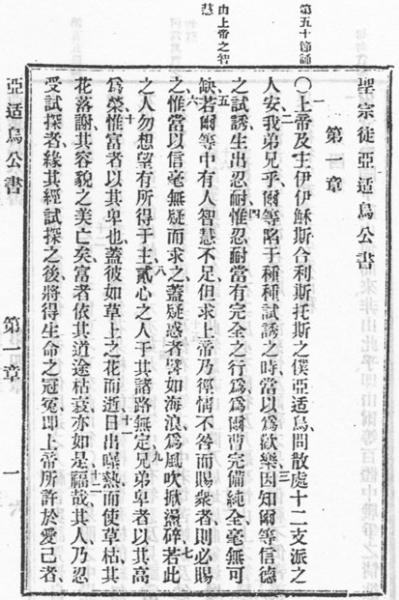 第五十節誦
由上帝之智
慧
聖宗徒亞适烏公書
第一章
〇上帝及主伊伊穌斯合利斯托斯之僕亞适烏、問散處十二支派之
人安、我弟兄乎、爾等陷于種種試誘之時、當以爲歡樂、因知爾等信德
之試誘、生出忍耐、惟忍耐當有完全之行爲、爲爾曹完備純全毫無可
缺、若爾等中有人智慧不足、但求上帝、乃徑情不咎而賜衆者、則必賜
之、惟當以信、毫無疑而求之、蓋疑惑者、譬如海浪、爲風吹掀盪碎、若此
之人、勿想望有所得于主、貳心之人、于其諸路無定、兄弟卑者、以其高
爲榮、惟富者以其卑也、蓋彼如草上之花而逝、日出曝熱、而使草枯、其
花落謝、其容貌之美亡矣、富者依其道途枯衰、亦如是、福哉其人、乃忍
受試探者、緣其經試探之後、將得生命之冠冕、即上帝所許於愛己者、
亞适烏公書 第一章 一